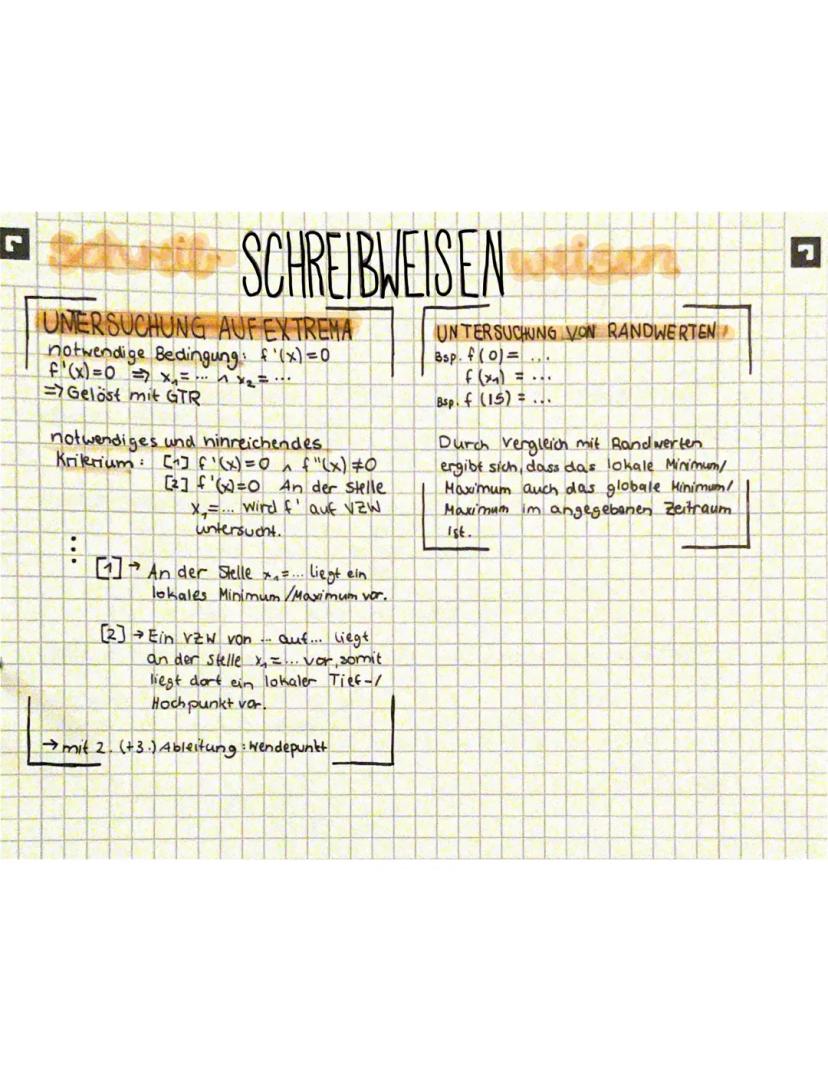 schreib- SCHREIBWEISEN weisen
UNTERSUCHUNG AUF EXTREMA
notwendige Bedingung: f'(x)=0
f'(x)=0 => x₁=... ∧ x₂=...
=> Gelöst mit GTR
notwendiges und hinreichendes
Kriterium: [1] f'(x)=0 ∧ f"(x)≠0
[2] f'(x)=0 An der Stelle
x₁=... wird f' auf VZW
untersucht.
[1] → An der Stelle x₁=... liegt ein
lokales Minimum/Maximum vor.
[2] → Ein VZW von ... auf... liegt
an der Stelle x₁=... vor, somit
liegt dort ein lokaler Tief-/
Hochpunkt vor.
→ mit 2. (+3.) Ableitung: Wendepunkt
UNTERSUCHUNG VON RANDWERTEN
Bsp. f(0)= ...
f(x₁) = ...
Bsp. f(15) = ...
Durch Vergleich mit Randwerten
ergibt sich, dass das lokale Minimum/
Maximum auch das globale Minimum/
Maximum im angegebenen Zeitraum
ist.